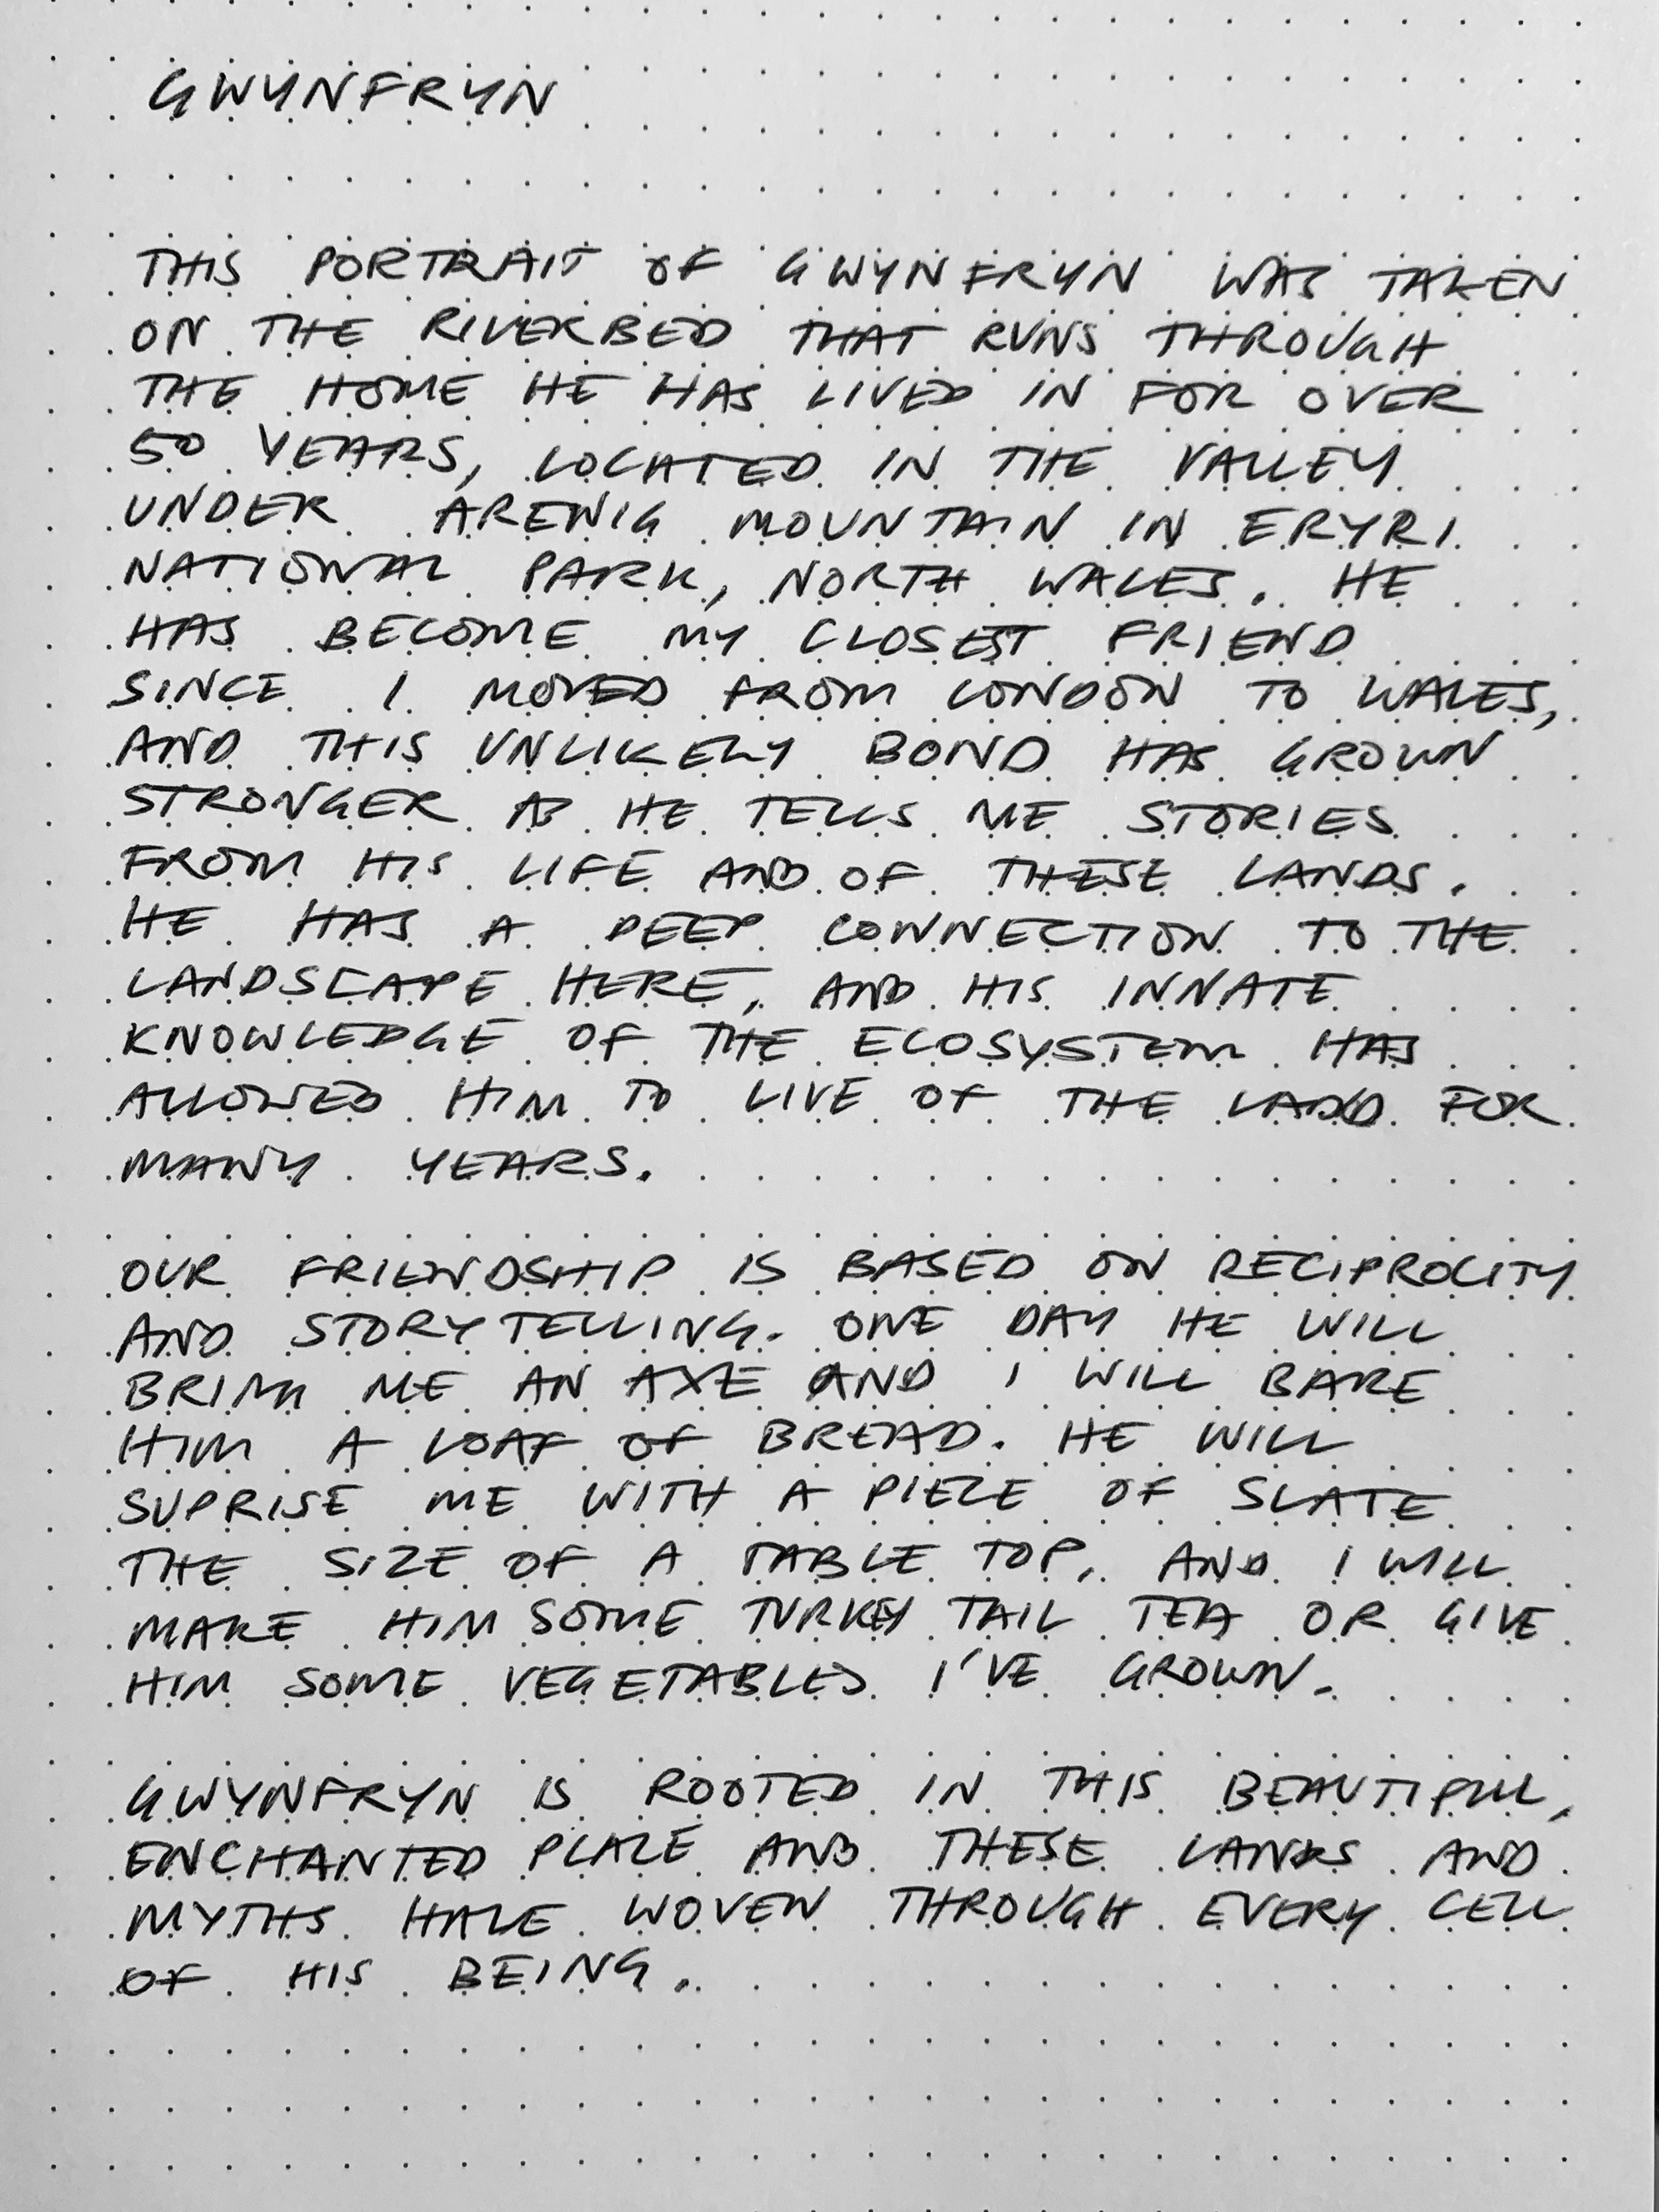 GWYNFRYN
THIS PORTRAIT OF GWYNFRYN WAS TAKEN
ON THE RIVERBED THAT RUNS THROUGH
THE HOME HE HAS LIVED IN FOR OVER
50 YEARS, LOCATED IN THE VALLEY
UNDER ARENIG MOUNTAIN IN ERYRI
NATIONAL PARK, NORTH WALES. HE
HAS BECOME MY CLOSEST FRIEND
SINCE I MOVED FROM LONDON TO WALES,
AND THIS UNLIKELY BOND HAS GROWN
STRONGER AS HE TELLS ME STORIES
FROM HIS LIFE AND OF THESE LANDS.
HE HAS A DEEP CONNECTION TO THE
LANDSCAPE HERE, AND HIS INNATE
KNOWLEDGE OF THE ECOSYSTEM HAS
ALLOWED HIM TO LIVE OF THE LAND FOR
MANY YEARS.
OUR FRIENDSHIP IS BASED ON RECIPROCITY
AND STORYTELLING. ONE DAY HE WILL
BRING ME AN AXE AND I WILL BAKE
HIM A LOAF OF BREAD. HE WILL
SUPRISE ME WITH A PIECE OF SLATE
THE SIZE OF A TABLE TOP, AND I WILL
MAKE HIM SOME TURKEY TAIL TEA OR GIVE
HIM SOME VEGETABLES I'VE GROWN.
GWYNFRYN IS ROOTED IN THIS BEAUTIFUL,
ENCHANTED PLACE AND THESE LANDS AND
MYTHS HAVE WOVEN THROUGH EVERY CELL
OF HIS BEING.